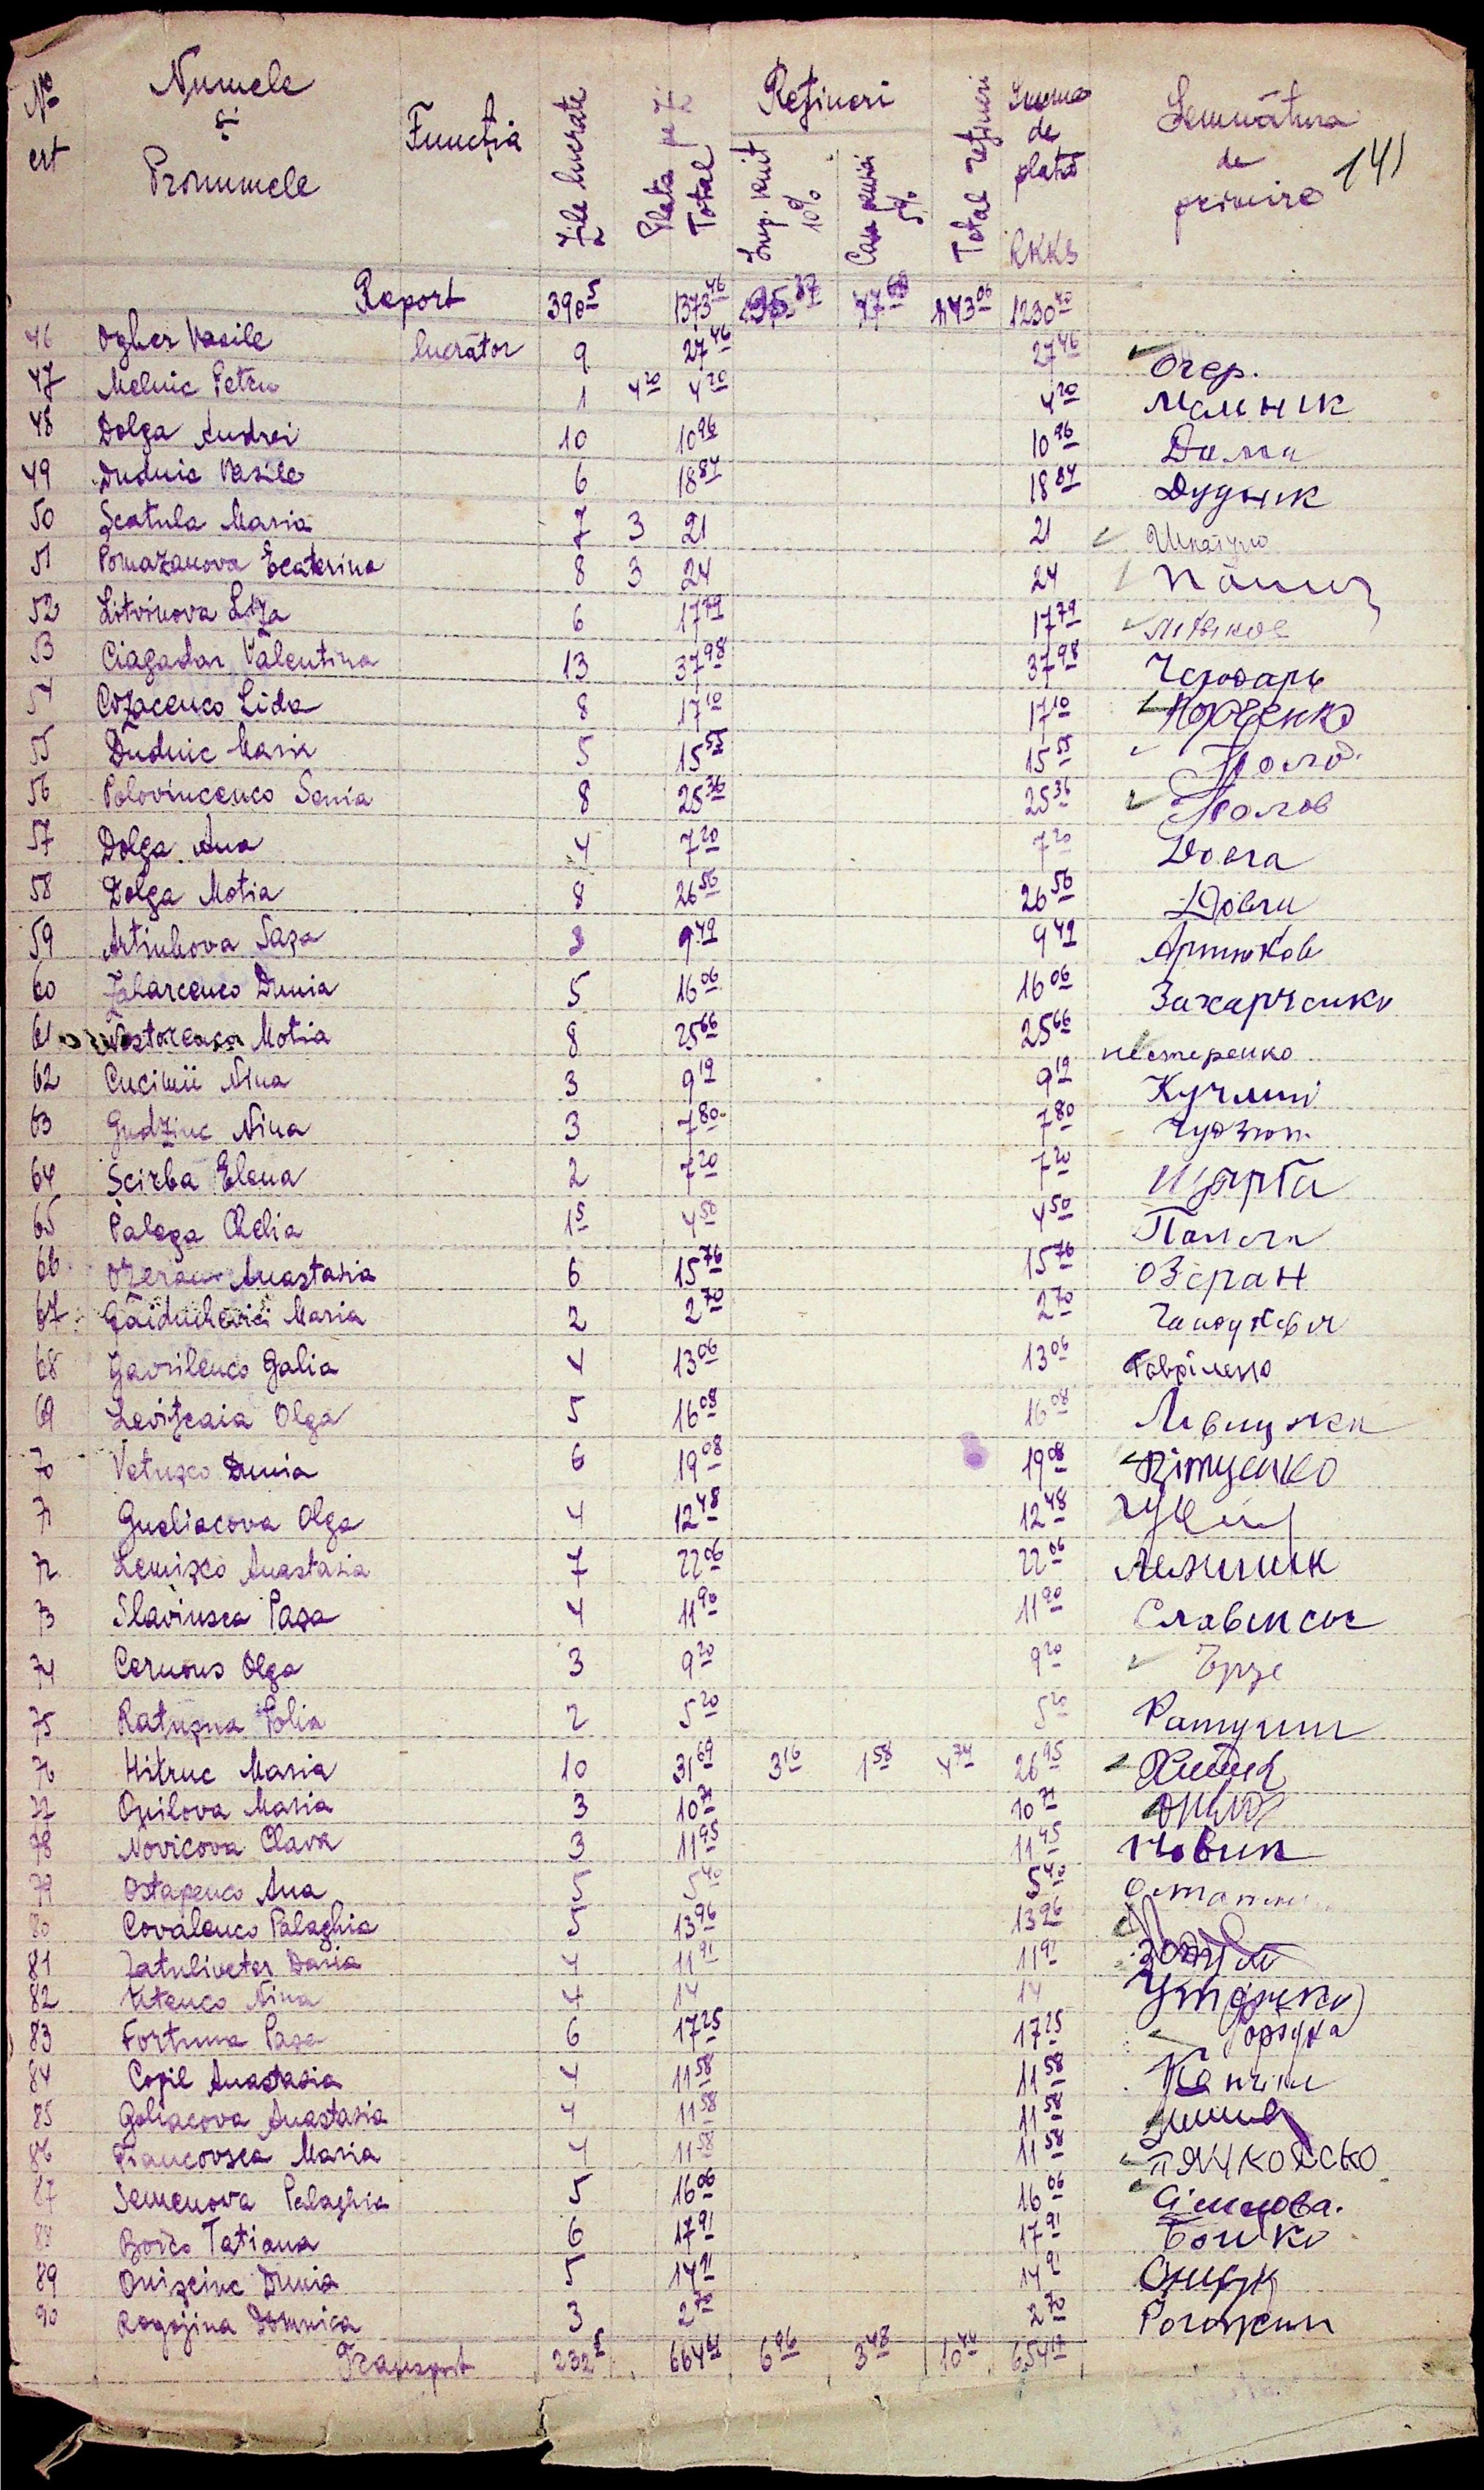 No crt Numele și Pronumele Funcția Zile lucrate Plata pe zi Total Rețineri Imp. venit 10% Casa pensii 5% Total rețineri Suma de plată RKKS Semnătura de primire 141
Report 390 5 1373 46 95 37 47 69 143 06 1230 40
46 Ogher Vasile lucrător 9 27 46 27 46 Огер.
47 Melnic Petru 1 4 20 4 20 4 20 Мельник
48 Dolga Andrei 10 10 96 10 96 Долга
49 Dudnic Vasile 6 18 84 18 84 Дудник
50 Șcatula Maria 7 3 21 21 Шкатула
51 Pomazanova Ecaterina 8 3 24 24
52 Litvinova Liza 6 17 79 17 79 Литвинов
53 Ciagadar Valentina 13 37 98 37 98 Чегодарь
54 Cozacenco Lida 8 17 10 17 10
55 Dudnic Maria 5 15 55 15 55
56 Polovincenco Senia 8 25 36 25 36 Полов
57 Dolga Ana 4 7 20 7 20 Долга
58 Dolga Motia 8 26 56 26 56 Довги
59 Artiuhova Sașa 3 9 49 9 49 Артюхов
60 Zaharcenco Dunia 5 16 06 16 06 Захарченко
61 Nestorenco Motia 8 25 66 25 66 нестеренко
62 Cucimii Nina 3 9 19 9 19 Кучмий
63 Gudziuc Nina 3 7 80 7 80 Гудзюк
64 Scirba Elena 2 7 20 7 20 Щирба
65 Palega Chelia 1 5 4 50 4 50 Палега
66 Ozeran Anastasia 6 15 76 15 76 Озеран
67 Gaiduchevici Maria 2 2 70 2 70 Гайдукевич
68 Gavrilenco Galia 4 13 06 13 06 Гавріленко
69 Levițcaia Olga 5 16 08 16 08 Левицька
70 Vetușco Dunia 6 19 08 19 08 Вітушко
71 Gualiacova Olga 4 12 48 12 48
72 Lemișco Anastasia 7 22 06 22 06 Лемишк
73 Slavinsca Pașa 4 11 90 11 90 Славинск
74 Cernous Olga 3 9 20 9 20
75 Ratușna Polia 2 5 20 5 20 Ратушн
76 Hitruc Maria 10 31 69 3 16 1 58 4 74 26 95
77 Opilova Maria 3 10 71 10 71
78 Novicova Clava 3 11 95 11 95 Новик
79 Ostapenco Ana 5 5 40 5 40
80 Covalenco Palaghia 5 13 96 13 96
81 Zatuliveter Daria 4 11 91 11 91 Затул
82 Utenco Nina 4 14 14 Утенко
83 Fortuna Pașa 6 17 25 17 25
84 Copil Anastasia 4 11 58 11 58
85 Goliacova Anastasia 4 11 58 11 58
86 Piancovsca Maria 4 11 58 11 58
87 Semenova Palaghia 5 16 06 16 06 Сіменова.
88 Boico Tatiana 6 17 91 17 91 Бойко
89 Onișciuc Dunia 5 14 91 14 91 Онищук
90 Rogojina Domnica 3 2 70 2 70 Рогожин
Transport 232 5 664 61 6 96 3 48 10 44 654 17